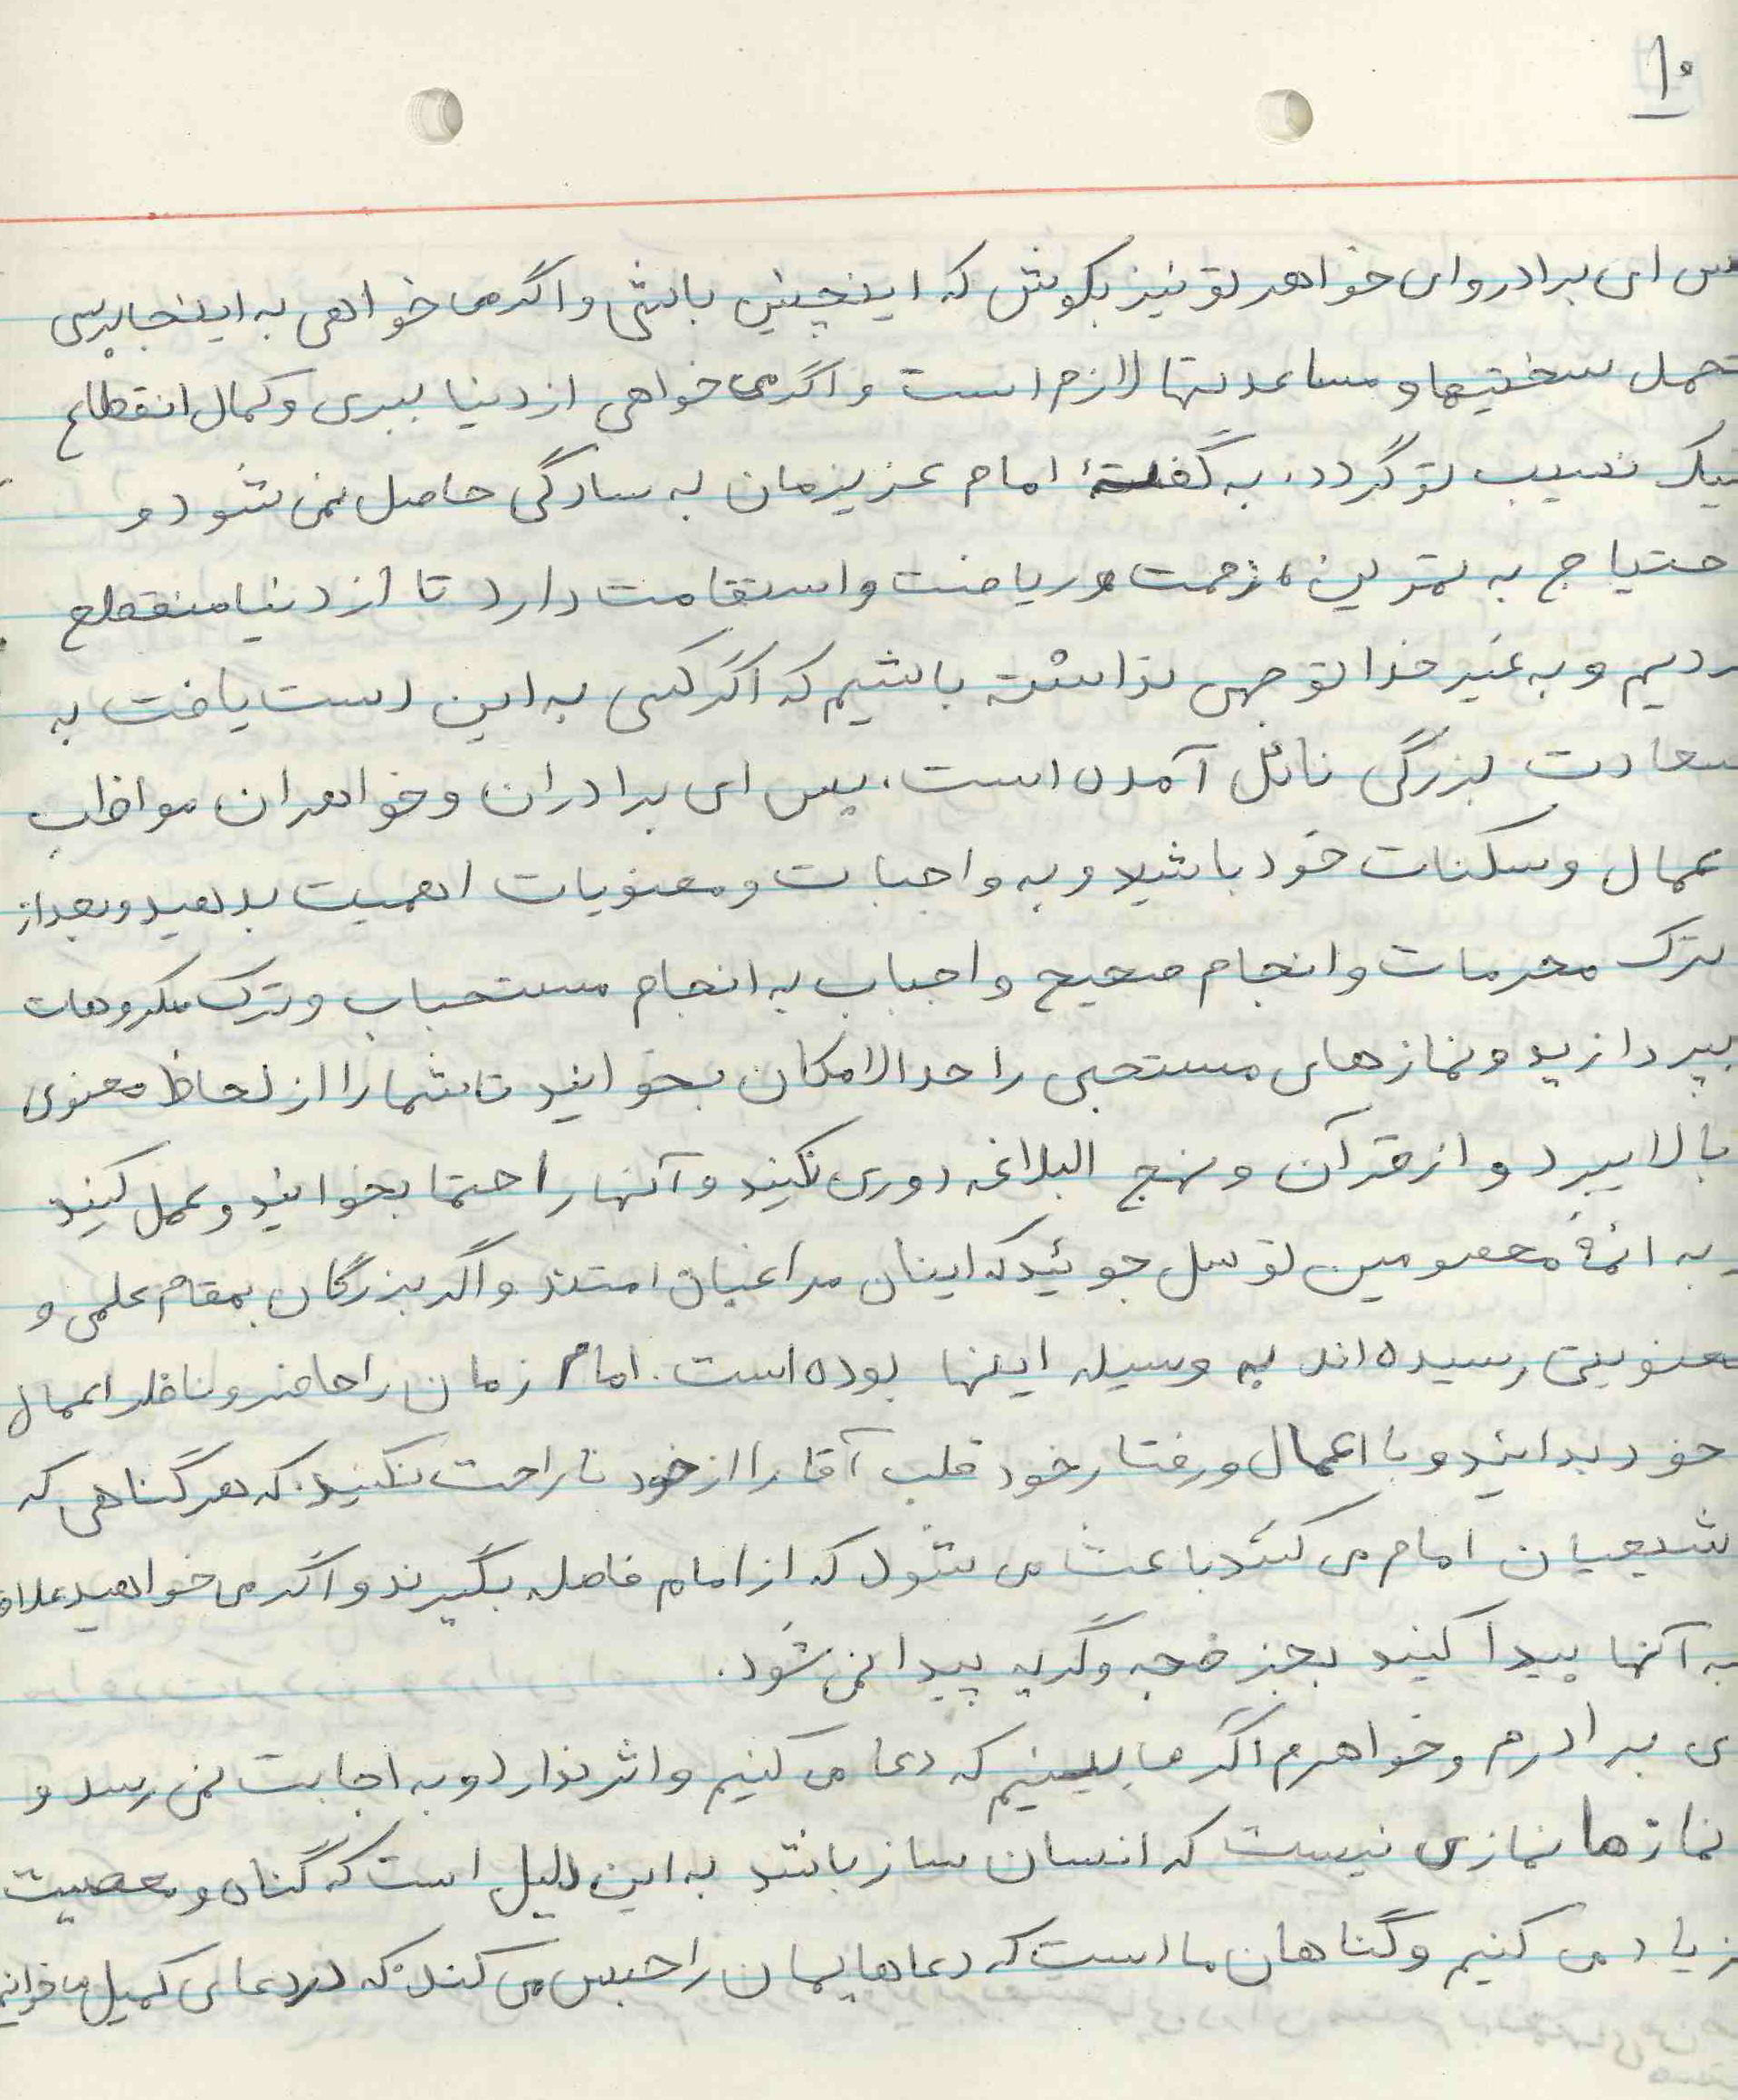 ۱۰
پس ای برادر و ای خواهر تو نیز بکوش که اینچنین باشی و اگر می خواهی به اینجا برسی
تحمل سختیها و مساعدتها لازم است و اگر می خواهی از دنیا ببری و کمال انقطاع
نیک نصیب تو گردد، به گفتهٔ امام عزیزمان به سادگی حاصل نمی شود و
حتیاج به تمرین، زحمت و ریاضت و استقامت دارد تا از دنیا منقطع
ردیم و به غیر خدا توجهی نداشته باشیم که اگر کسی به این دست یافت به
سعادت بزرگی نائل آمده است، پس ای برادران و خواهران مواظب
عمال و سکنات خود باشید و به واجبات و معنویات اهمیت بدهید و بعد از
ترک محرمات و انجام صحیح واجباب به انجام مستحباب و ترک مکروهات
بپردازید و نمازهای مستحبی را حدالامکان بخوانید تا شما را از لحاظ معنوی
بالا ببرد و از قرآن و نهج البلاغه دوری نکنید و آنها را حتما بخوانید و عمل کنید
به ائمهٔ معصومین توسل جوئید که اینان مراعیان امتند و اگر بزرگان بمقام علمی و
معنویتی رسیده اند به وسیله اینها بوده است. امام زمان را حاضر و ناظر اعمال
خود بدانید و با اعمال و رفتار خود قلب آقا را از خود ناراحت نکنید. که هر گناهی که
شیعیان امام می کنند باعث می شود که از امام فاصله بگیرند و اگر می خواهید علاقه
به آنها پیدا کنید بجز ضجه و گریه پیدا نمی شود.
ی برادرم و خواهرم اگر ما ببینیم که دعا می کنیم و اثر ندارد و به اجابت نمی رسد و
نمازها نمازی نیست که انسان ساز باشد به این دلیل است که گناه و معصیت
زیاد می کنیم و گناهان ما است که دعاهایمان را حبس می کند. که در دعای کمیل می خوانیم